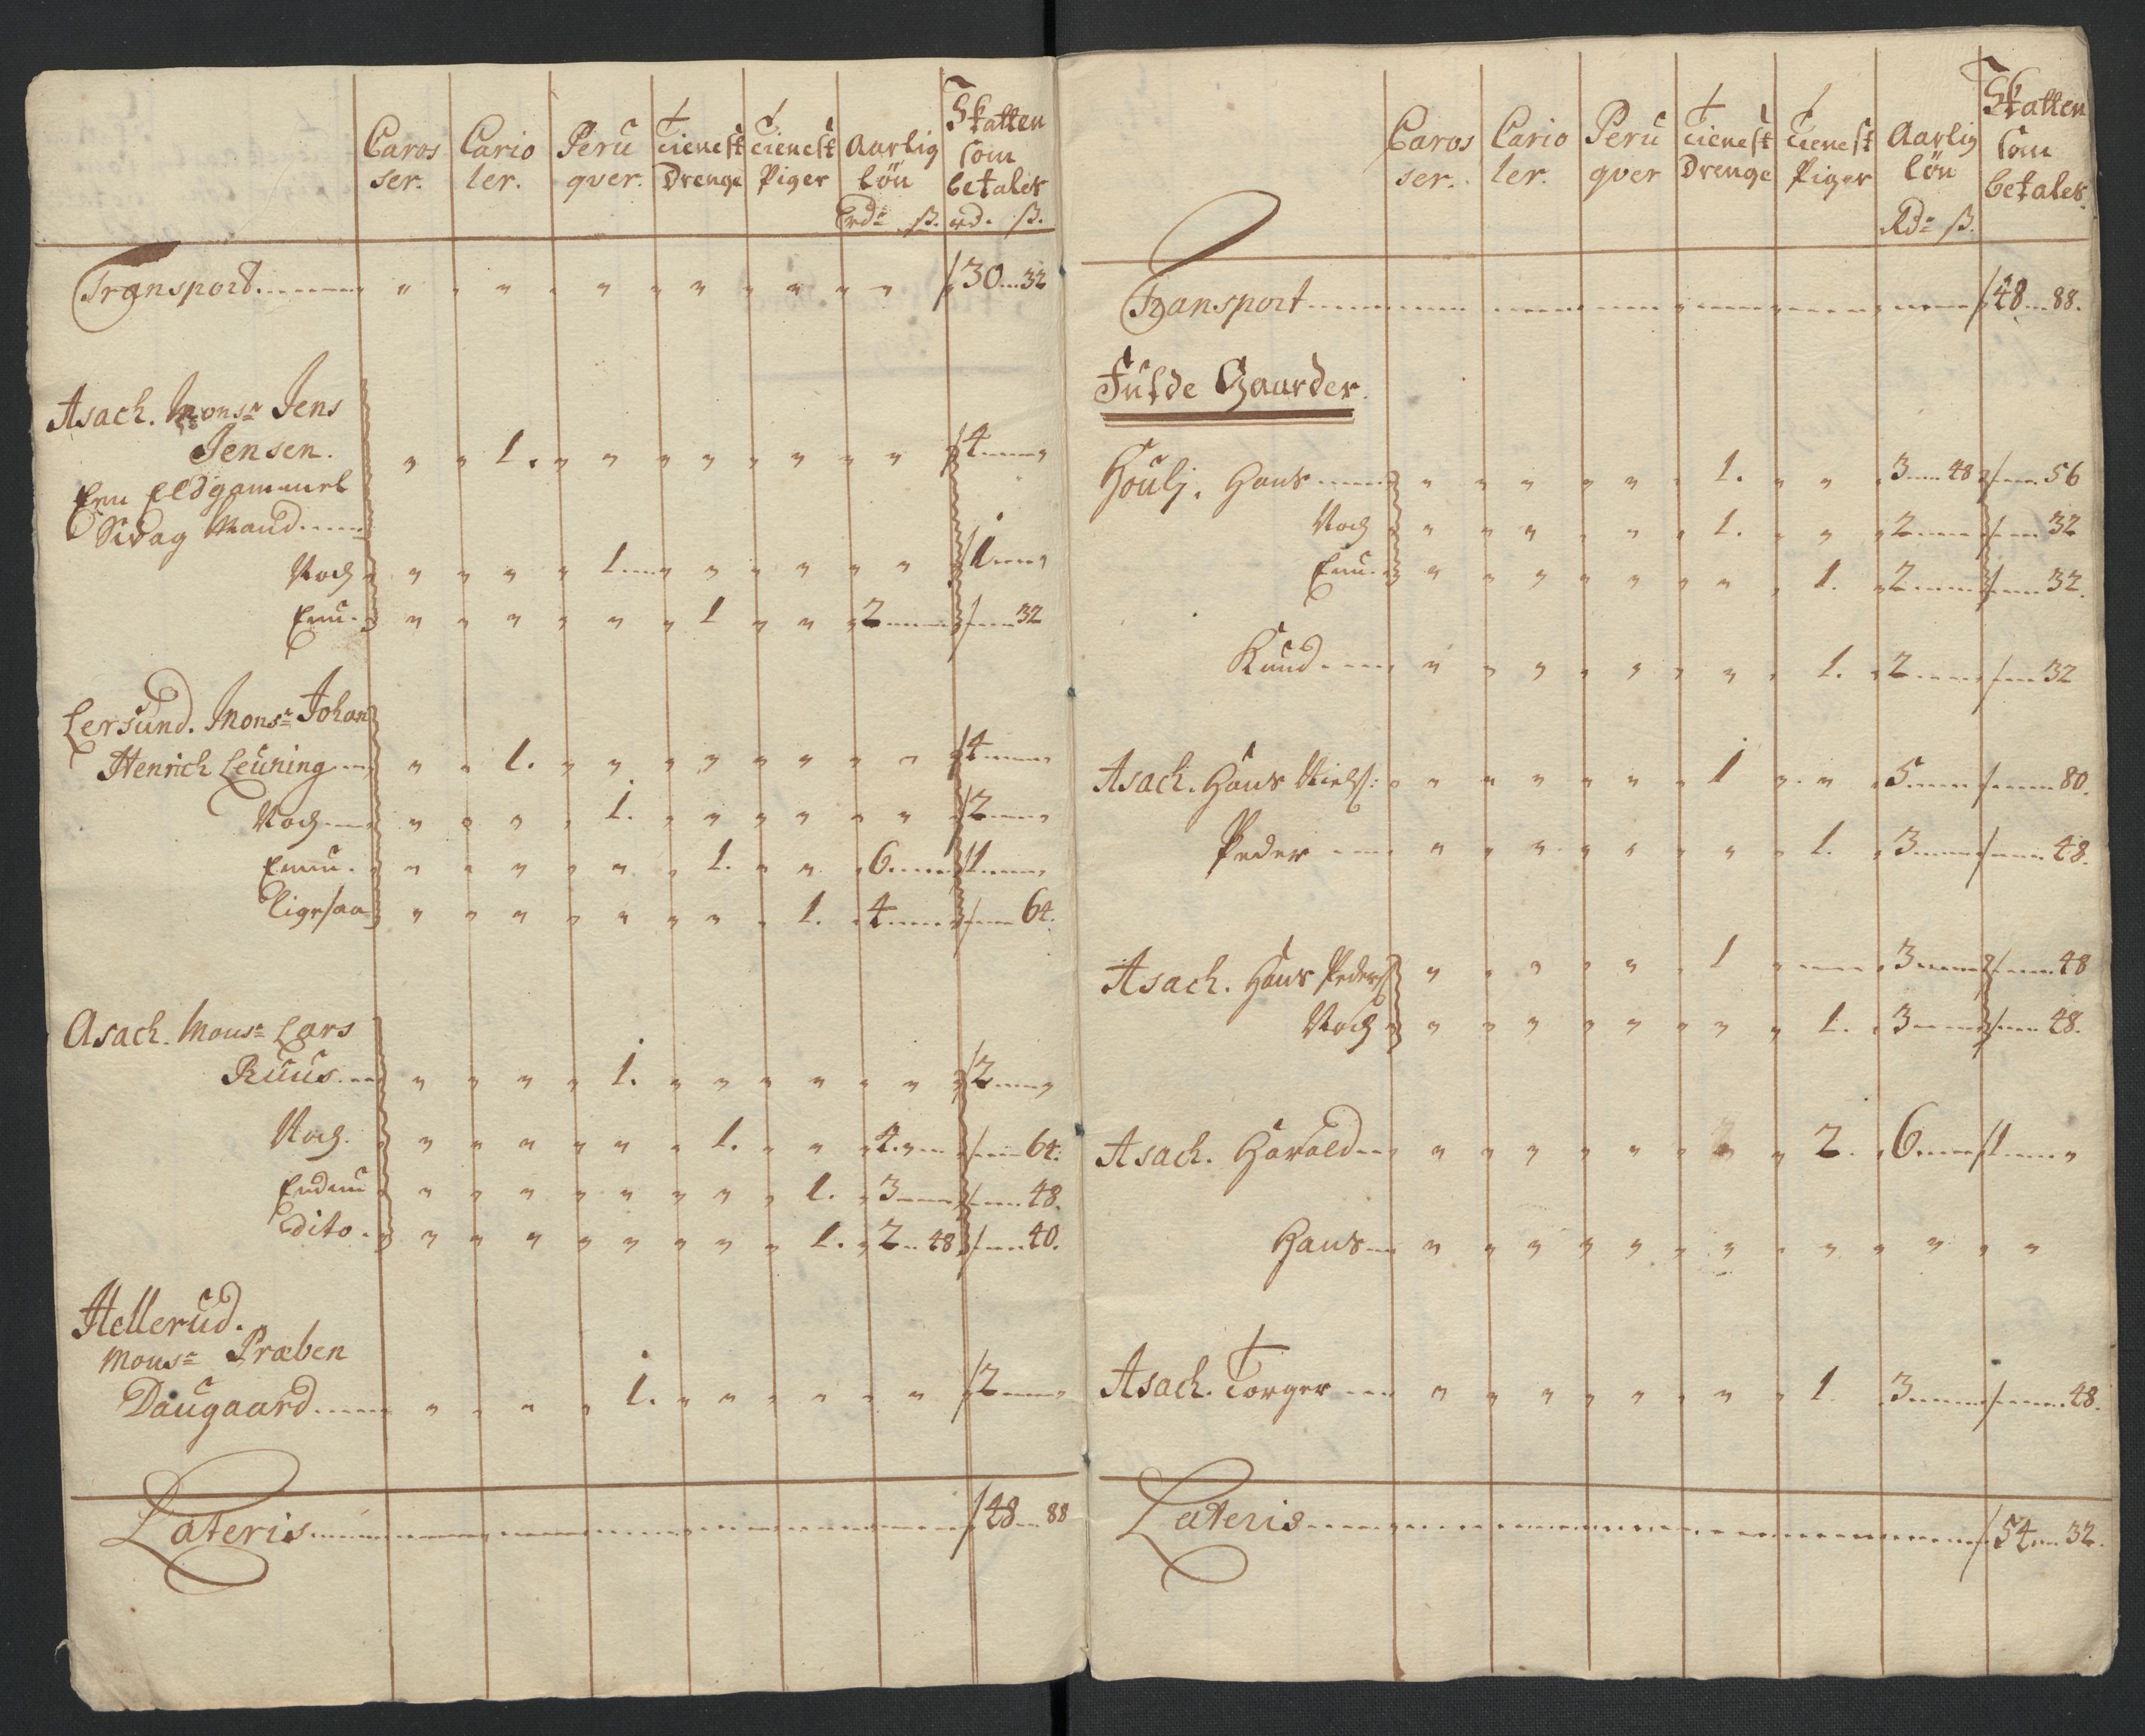 Caros Cario Peru Tienest Tienest Aarlig Skatten
ser. ler. qver. Drenge Piger Løn som
betaler
Rd. ß. rd. ß.
Transport 30 32
Asach. Monsr Jens
Jensen. 1. 4
Een Eldgammel
Svag Mand
Noch 1 1
Ennu 1 2 32
Lersund. Monsr Johan
Henrich Leuning 1. 4
Noch 1. 2
Ennu. 1. 6 1
Ligesaa 1. 4 64.
Asach. Monsr Lars
Ruus. 1. 2
Noch. 1. 4 64.
Endnu 1. 3 48.
dito. 1. 2 48 40.
Hellerud.
Monsr Præben
Daugaard 1. 2
Lateris 48 88
Caros Cario Peru Tienest Tienest Aarlig Skatten
ser. ler. qver Drenge Piger Løn som
betaler.
Rdr ß.
Transport 48 88.
Fulde Gaarder.
Houlj. Hans 1. 3 48 56
Noch 1. 2 32
Ennu. 1. 2 32.
Knud 1. 2 32
Asach. Hans Nielß: 1 5 80.
Peder 1. 3 48.
Asach. Hans Pederß 1 3 48
Noch 1. 3 48.
Asach. Harald 2. 6 1
Hans
Asach. Torger 1. 3 48.
Lateris 54 32.